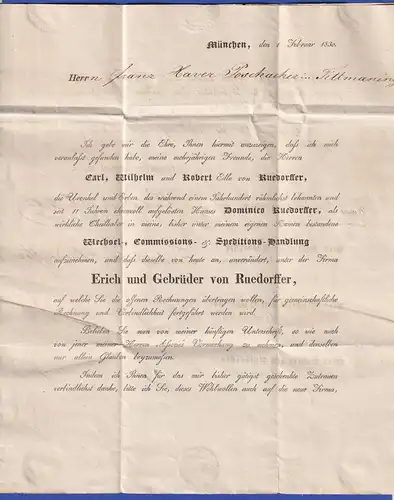 München, den 1 Februar 1830.
Herrn Franz Xaver Poschacher in Tittmaning
Ich gebe mir die Ehre, Ihnen hiermit anzuzeigen, daß ich mich
veranlaßt gefunden habe, meine mehrjährigen Freunde, die Herren
Carl, Wilhelm und Robert Edle von Ruedorffer,
die Urenkel und Erben des während einem Jahrhundert rühmlichst bekannten und
seit 11 Jahren ehrenvoll aufgelösten Hauses Dominico Ruedorffer, als
wirkliche Theilhaber in meine, bisher unter meinem eigenen Namen bestandene
Wechsel-, Commissions- & Speditions-Handlung
aufzunehmen, und daß dieselbe von heute an, unverändert, unter der Firma
Erich und Gebrüder von Ruedorffer,
auf welche Sie die offenen Rechnungen übertragen wollen, für gemeinschaftliche
Rechnung und Verbindlichkeit fortgeführt werden wird.
Belieben Sie nun von meiner künftigen Unterschrift, so wie auch
von jener meiner Herren Associés Vormerkung zu nehmen, und denselben
nur allein Glauben beyzumessen.
Indem ich Ihnen für das mir bisher gütigst geschenkte Zutrauen
verbindlichst danke, bitte ich Sie, dieses Wohlwollen auch auf die neue Firma,